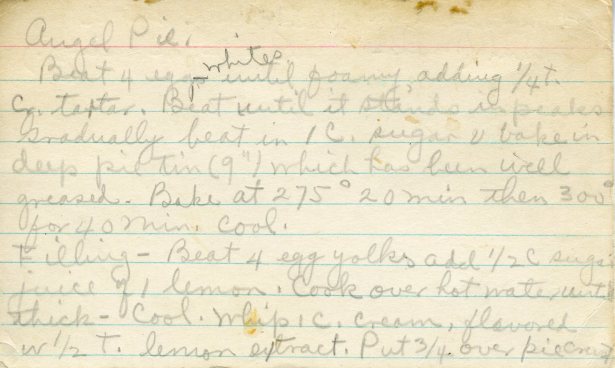 Angel Pie.
whites
Beat 4 egg until foamy, adding 1/4 t.
Cr. tartar. Beat until it stands in peaks
Gradually beat in 1 C. sugar & bake in
deep pie tin (9") which has been well
greased. Bake at 275° 20 min then 300°
for 40 min. Cool.
Filling - Beat 4 egg yolks add 1/2 C sugar
juice of 1 lemon. Cook over hot water until
thick - Cool. Whip 1 C. cream, flavored
w 1/2 t. lemon extract. Put 3/4 over pie crust